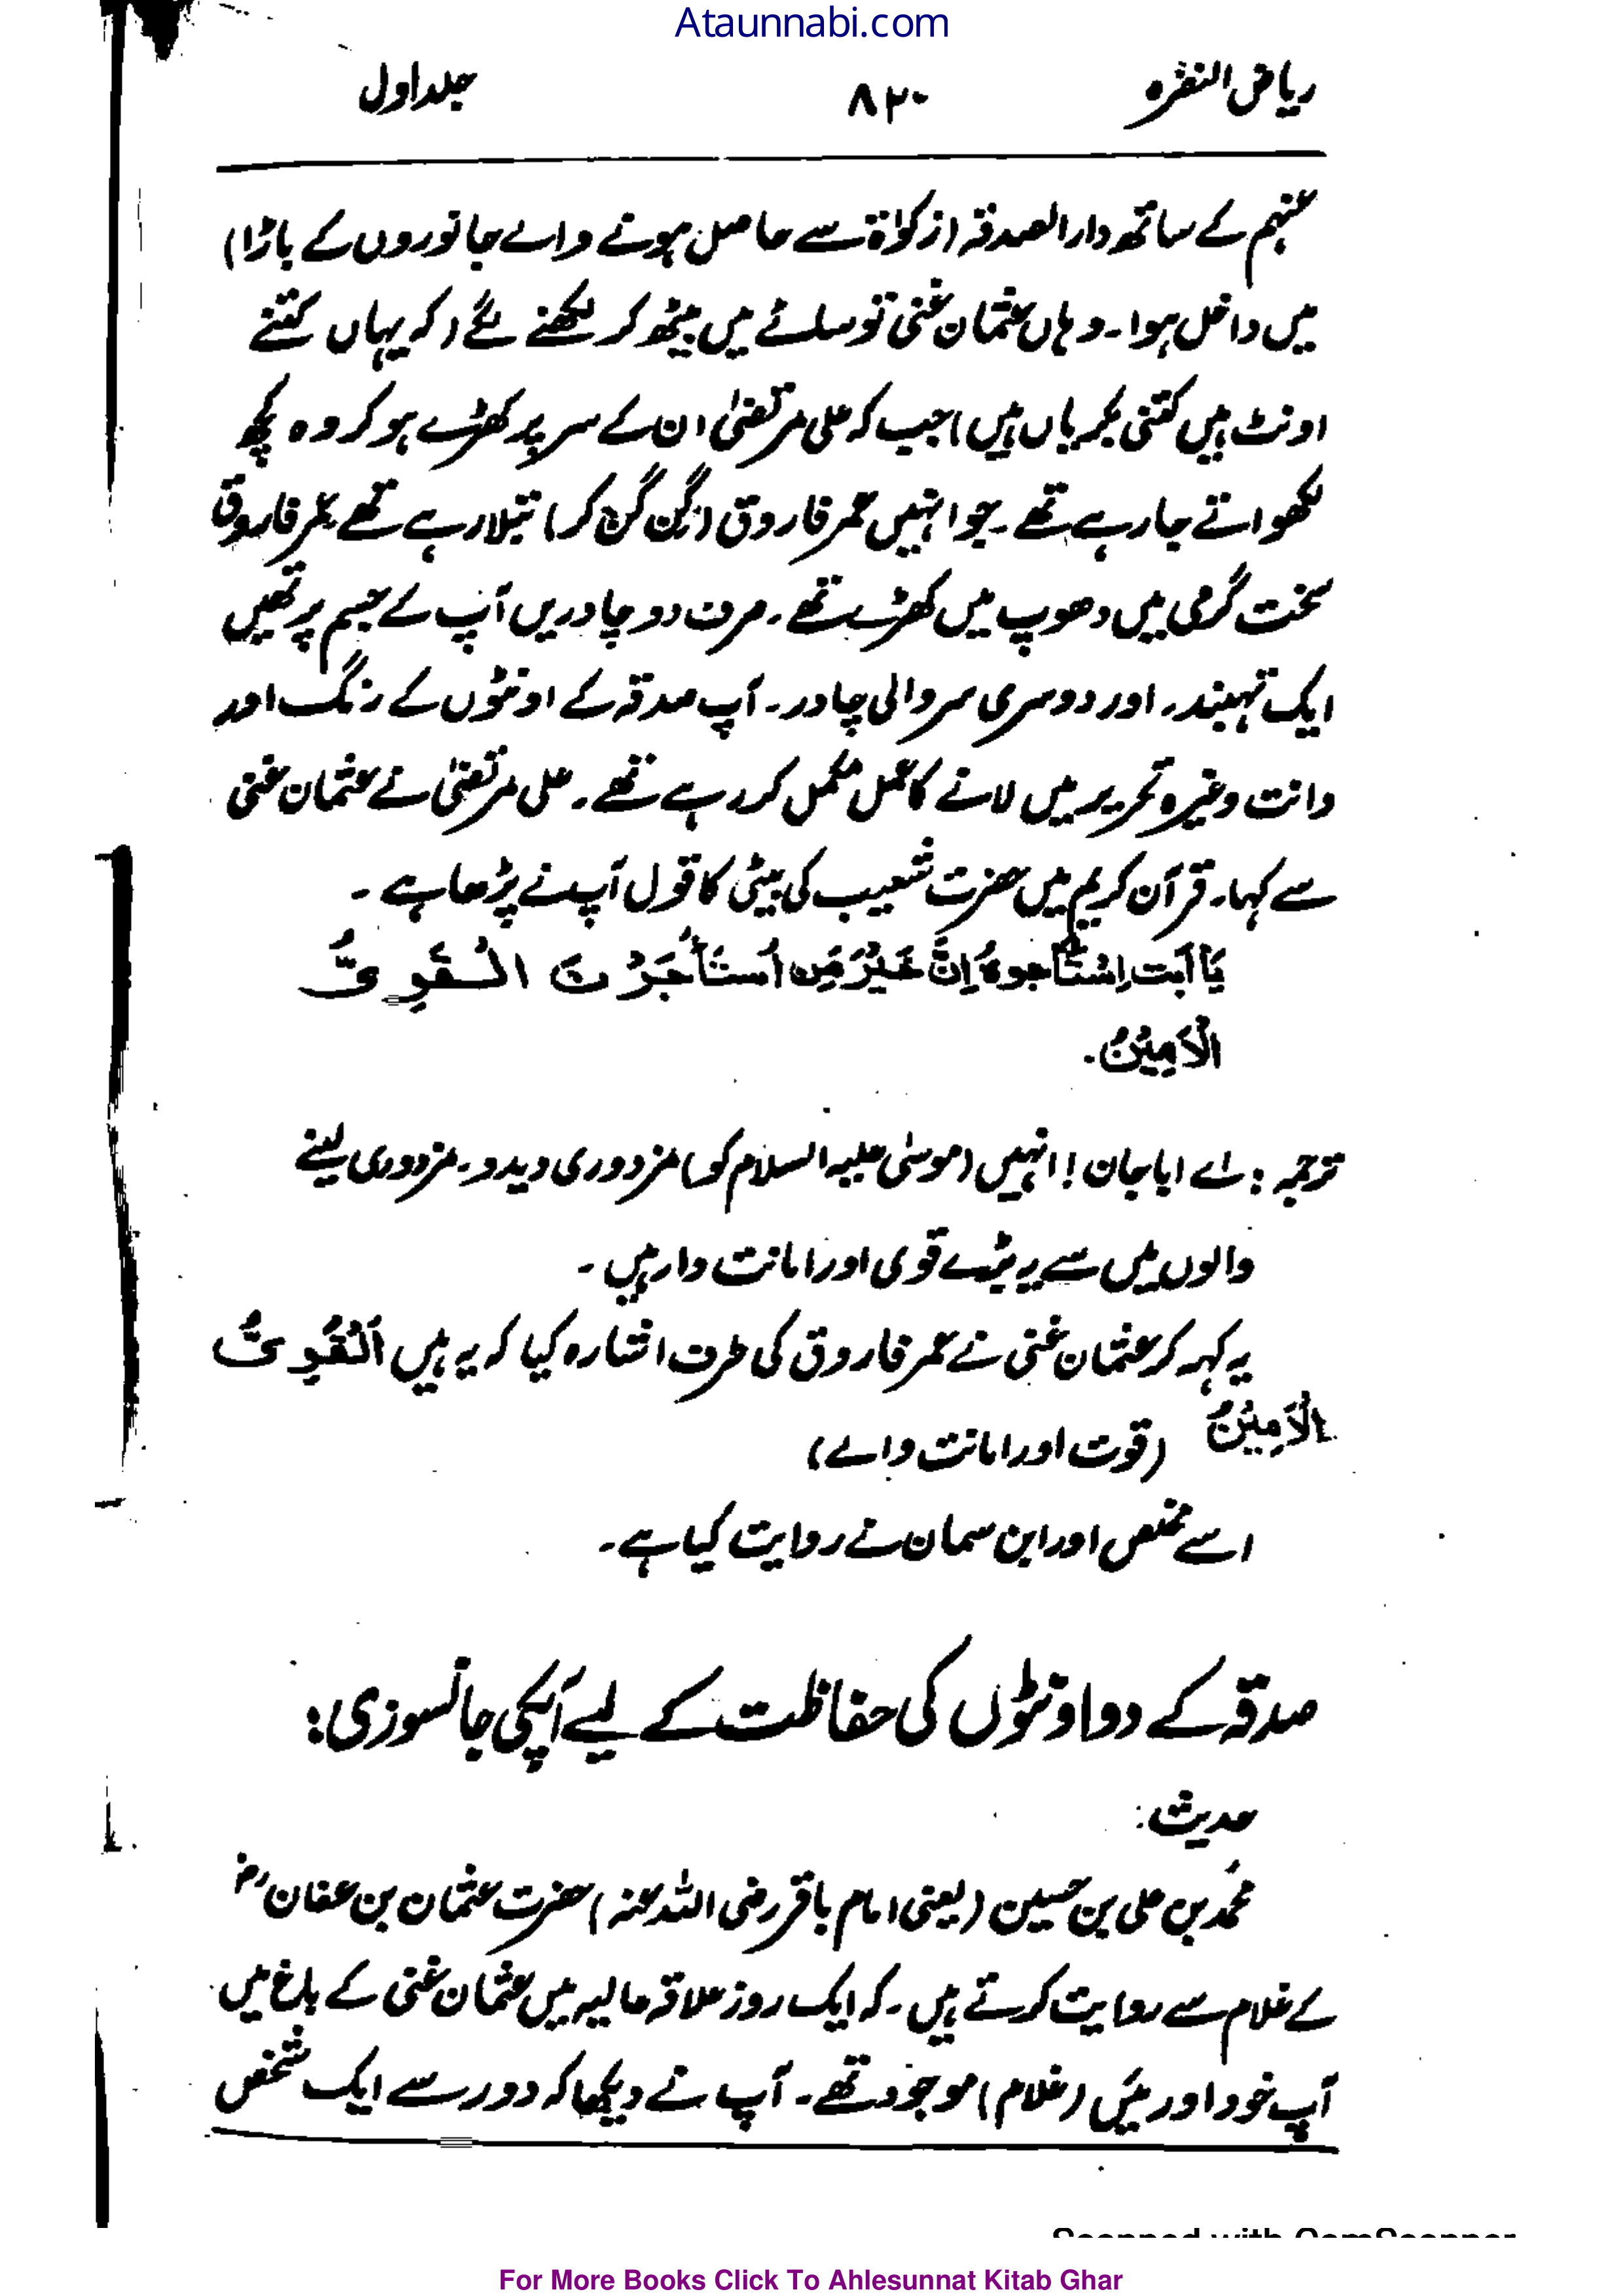 Ataunnabi.com
ریاض النضرہ ۸۲۰ جلد اول
عنہم کے ساتھ دارالصدقہ (زکوٰۃ سے حاصل ہونے والے جانوروں کے باڑا)
میں داخل ہوا۔ وہاں عثمان غنی تو سائے میں بیٹھ کر لکھنے لگے (کہ یہاں کتنے
اونٹ ہیں کتنی بکریاں ہیں) جب کہ علی مرتضیٰ ان کے سر پر کھڑے ہو کر وہ کچھ
لکھواتے جا رہے تھے۔ جو انہیں عمر فاروق (گن گن کر) بتلا رہے تھے عمر فاروق
سخت گرمی میں دھوپ میں کھڑے تھے۔ صرف دو چادریں آپ کے جسم پر تھیں
ایک تہبند۔ اور دوسری سر والی چادر۔ آپ صدقہ کے اونٹوں کے رنگ اور
دانت وغیرہ تحریر میں لانے کا عمل مکمل کر رہے تھے۔ علی مرتضیٰ نے عثمان غنی
سے کہا۔ قرآن کریم میں حضرت شعیب کی بیٹی کا قول آپ نے پڑھا ہے۔
يَا أَبَت اِسْتَأْجِرهُ اِنَّ خَيْرَ مَن اُستَأْجَرْتَ الْقَوِىُّ
الْاَمِيْنُ۔
ترجمہ : اے ابا جان ! انہیں (موسیٰ علیہ السلام کو) مزدوری دیدو۔ مزدوری لینے
والوں میں سے یہ بڑے قوی اور امانت دار ہیں۔
یہ کہہ کر عثمان غنی نے عمر فاروق کی طرف اشارہ کیا کہ یہ ہیں اَلْقَوِىُّ
الْاَمِيْنُ (قوت اور امانت والے)
اسے مخلص اور ابن سمان نے روایت کیا ہے۔
صدقہ کے دو اونٹوں کی حفاظت کے لیے آپکی جانسوزی:
حدیث:
محمد بن علی بن حسین (یعنی امام باقر رضی اللہ عنہ) حضرت عثمان بن عفان رض
کے غلام سے روایت کرتے ہیں۔ کہ ایک روز علاقہ عالیہ میں عثمان غنی کے باغ میں
آپ خود اور میں (غلام) موجود تھے۔ آپ نے دیکھا کہ دور سے ایک شخص
Scanned with CamScanner
For More Books Click To Ahlesunnat Kitab Ghar